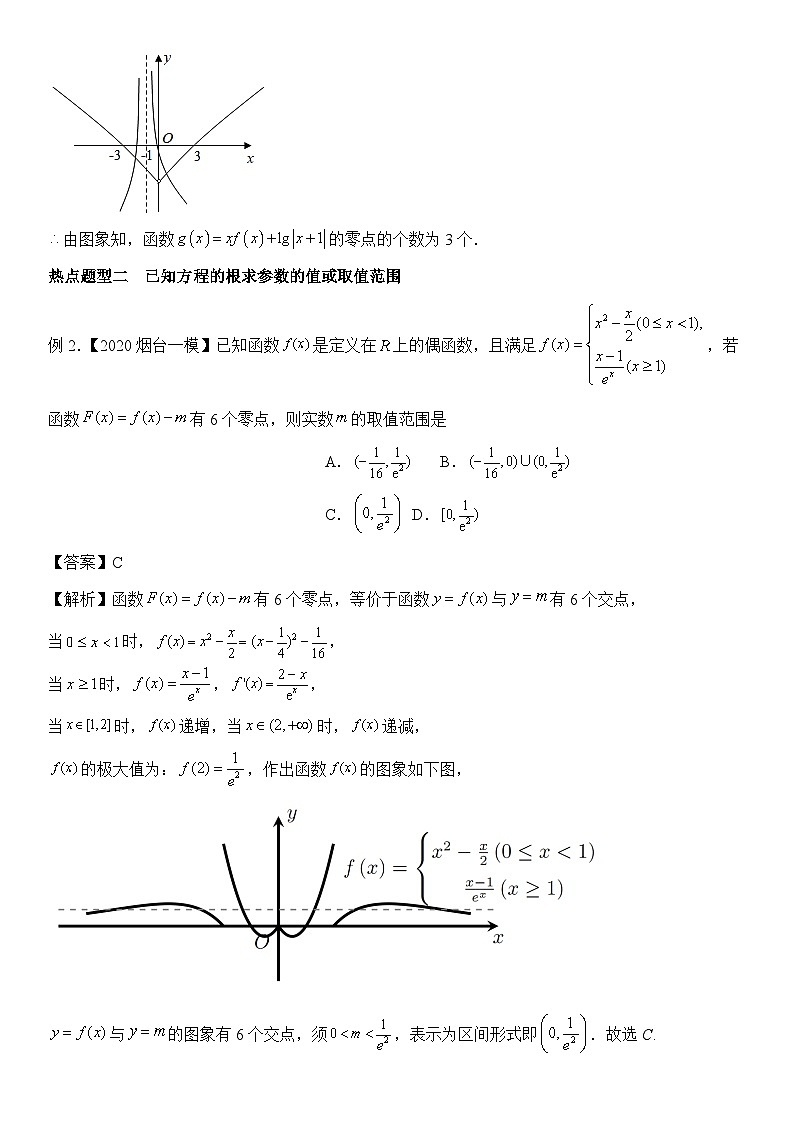 y
O
-3 -1 3 x
∴由图象知，函数g(x)=xf(x)+lg|x+1|的零点的个数为3个.
热点题型二 已知方程的根求参数的值或取值范围
例2.【2020烟台一模】已知函数f(x)是定义在R上的偶函数，且满足f(x)={x²-x/2(0≤x<1), (x-1)/eˣ(x≥1)，若
函数F(x)=f(x)-m有6个零点，则实数m的取值范围是
A. (-1/16,1/e²) B. (-1/16,0)∪(0,1/e²)
C. (0,1/e²) D. [0,1/e²)
【答案】C
【解析】函数F(x)=f(x)-m有6个零点，等价于函数y=f(x)与y=m有6个交点，
当0≤x<1时，f(x)=x²-x/2=(x-1/4)²-1/16，
当x≥1时，f(x)=(x-1)/eˣ，f'(x)=(2-x)/eˣ，
当x∈[1,2]时，f(x)递增，当x∈(2,+∞)时，f(x)递减，
f(x)的极大值为：f(2)=1/e²，作出函数f(x)的图象如下图，
y
f(x)={x²-x/2(0≤x<1) (x-1)/eˣ(x≥1)
O
x
y=f(x)与y=m的图象有6个交点，须0<m<1/e²，表示为区间形式即(0,1/e²). 故选C.